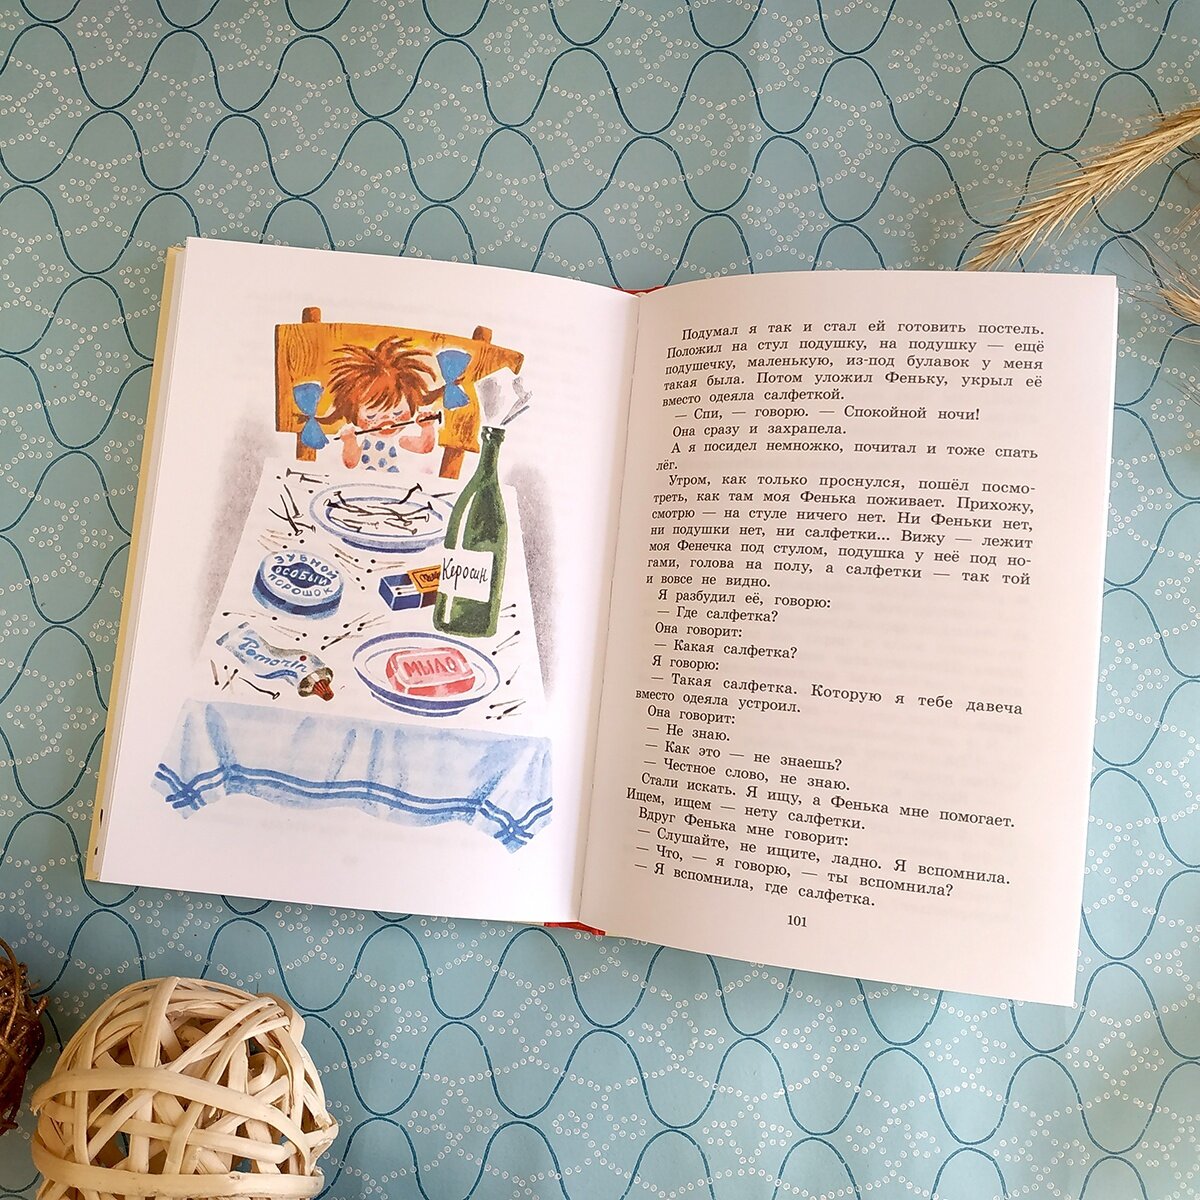 ЗУБНОЙ
ОСОБЫЙ
ПОРОШОК
Керосин
Pomorin
МЫЛО
Подумал я так и стал ей готовить постель.
Положил на стул подушку, на подушку — ещё
подушечку, маленькую, из-под булавок у меня
такая была. Потом уложил Феньку, укрыл её
вместо одеяла салфеткой.
— Спи, — говорю. — Спокойной ночи!
Она сразу и захрапела.
А я посидел немножко, почитал и тоже спать
лёг.
Утром, как только проснулся, пошёл посмо-
треть, как там моя Фенька поживает. Прихожу,
смотрю — на стуле ничего нет. Ни Феньки нет,
ни подушки нет, ни салфетки... Вижу — лежит
моя Фенечка под стулом, подушка у неё под но-
гами, голова на полу, а салфетки — так той
и вовсе не видно.
Я разбудил её, говорю:
— Где салфетка?
Она говорит:
— Какая салфетка?
Я говорю:
— Такая салфетка. Которую я тебе давеча
вместо одеяла устроил.
Она говорит:
— Не знаю.
— Как это — не знаешь?
— Честное слово, не знаю.
Стали искать. Я ищу, а Фенька мне помогает.
Ищем, ищем — нету салфетки.
Вдруг Фенька мне говорит:
— Слушайте, не ищите, ладно. Я вспомнила.
— Что, — я говорю, — ты вспомнила?
— Я вспомнила, где салфетка.
101